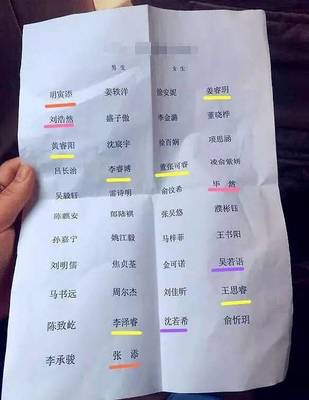 男生 女生
胡寅添 姜轶洋 徐安妮 姜睿玥
刘浩然 盛子傲 李金潞 董晓桦
黄睿阳 沈宸宇 徐百娴 项思涵
吕长治 李睿博 董张可睿 凌俞紫妍
吴毅轩 雷诗明 俞汶希 毕然
陈麒安 邹陆祺 张昊悠 濮彬钰
孙嘉宁 姚江毅 马梓菲 王书阳
刘明儒 焦贞茎 金可诺 吴若语
马书远 周尔杰 刘佳昕 王思睿
陈致屹 李泽睿 沈若希 俞忻玥
李承骏 张添